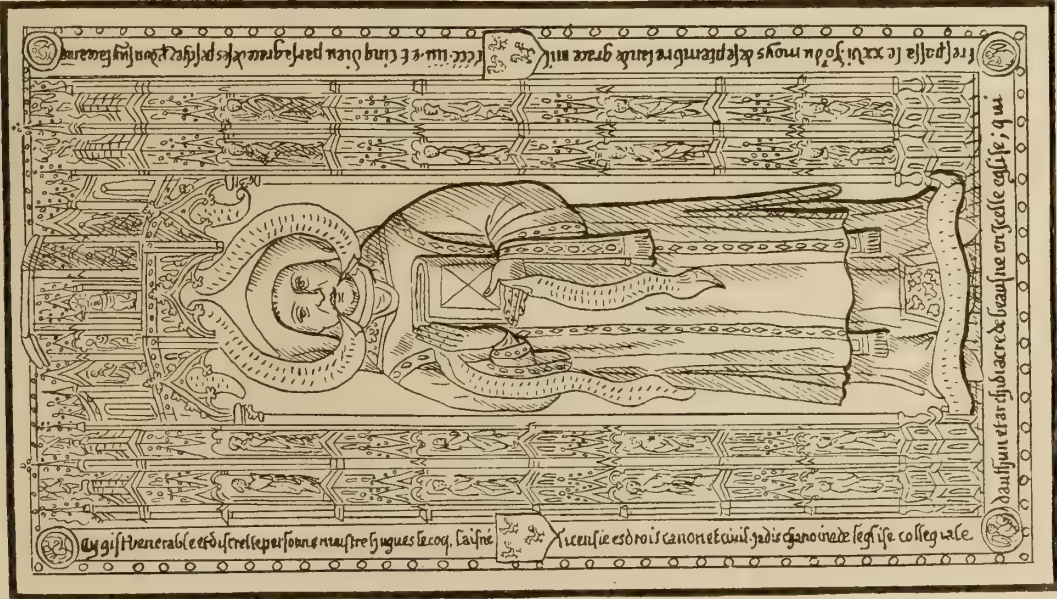 Cy gist venerable et discrette personne maistre hugues lecoq. laisné licensie es drois canon et ciuil. jadis chanoine de leglise collegiale
dauthun et archidiacre de beausne en jcelle eglise; qui
trespassa le xxvi jor du moys de septembre lan de grace mil cccc et cinq dieu par sa grace de ses pechez pardon luy face amen